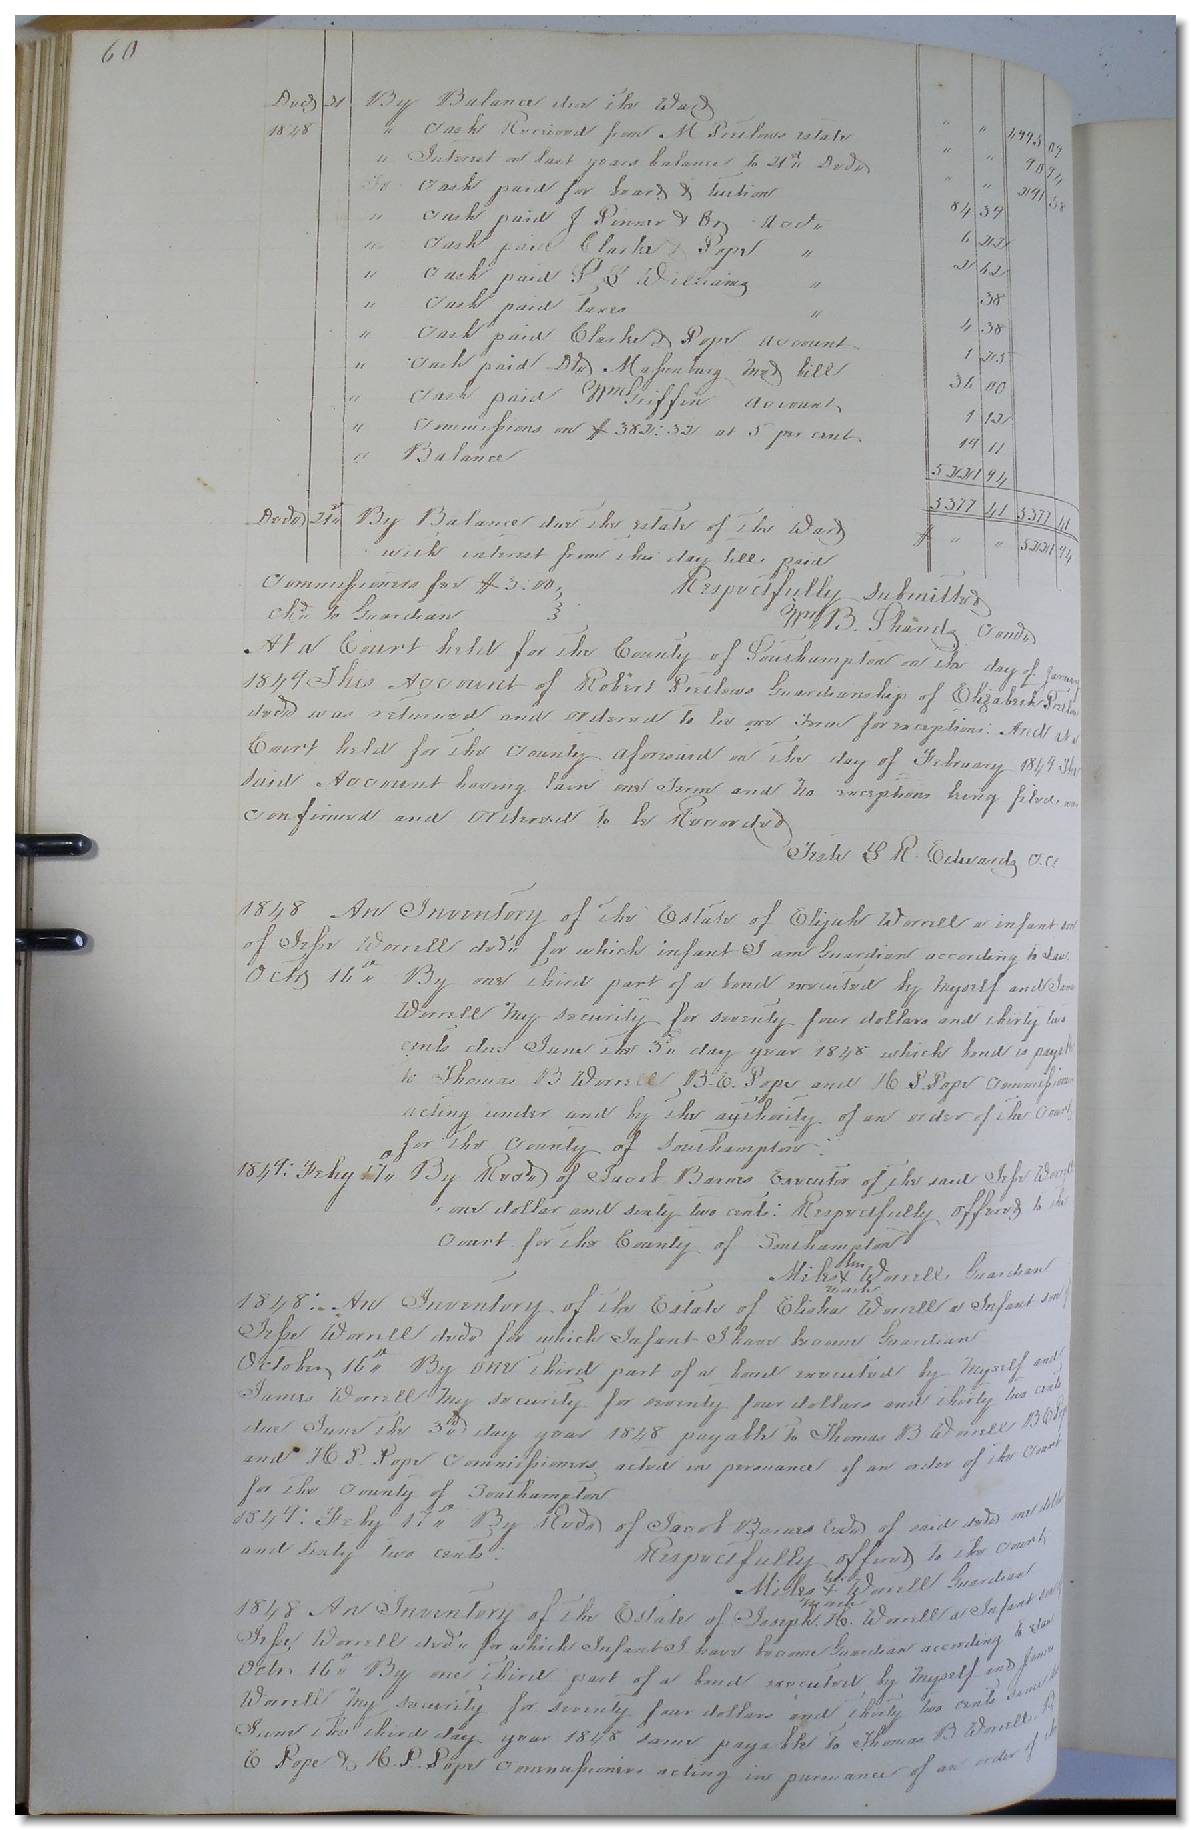 60
Decr 21 By Balance due the Ward " " 4995 09
1848 " Cash Received from M Pretlows estate " " 90 74
" Interest on last years balance to 21st Decr " " 291 58
To Cash paid for board & tuition 84 39
" Cash paid J Pinner & Co Acct" 6 22
" Cash paid Clarke & Pope " 2 42
" Cash paid P S Williams " 38
" Cash paid taxes " 4 38
" Cash paid Clarke & Pope account 1 25
" Cash paid Dr Musenburg Med bill 36 00
" Cash paid Wm Griffin account 1 12
" Commissions on $382:32 at 5 per cent 19 11
" Balance 5221 94
5377 41 5377 41
Decr 21st By Balance due the estate of the Ward $ " " 5221 94
with interest from this day till paid
Commissioners fee $3:00 Respectfully submitted
chd. to Guardian 3 Wm B. Shands Comr
At a Court held for the County of Southampton on the day of January
1849 This Account of Robert Pretlows Guardianship of Elizabeth Pretlow
decd was returned and ordered to lie one Term for exceptions: And at a
Court held for the County aforesaid on the day of February 1849 The
said Account having lain one Term and no exceptions being filed was
confirmed and ordered to be Recorded
Teste L R. Edwards C.C.
1848 An Inventory of the Estate of Elijah Worrell a infant son
of Jesse Worrell decd for which infant I am Guardian according to Law.
Octr 16th By one third part of a bond executed by Myself and James
Worrell My security for seventy four dollars and thirty two
cents due June the 3d day year 1848 which bond is payable
to Thomas B Worrell B.E. Pope and H P. Pope Commissioners
acting under and by the authority of an order of the Court
for the County of Southampton:
1849: Feby 17th By Recd of Jacob Barnes Executor of the said Jesse Worrell
one dollar and sixty two cents: Respectfully offered to the
Court for the County of Southampton
his
Miles X Worrell Guardian
mark
1848:- An Inventory of the Estate of Elisha Worrell a Infant son of
Jesse Worrell decd for which Infant I have become Guardian
October 16th By one third part of a bond executed by Myself and
James Worrell My security for seventy four dollars and thirty two cents
due June the 3rd day year 1848 payable to Thomas B Worrell B E Pope
and H P. Pope Commissioners acted in persuance of an order of the Court
for the County of Southampton
1849: Feby 17th By Recd of Jacob Barnes Exr of said decd one dollar
and sixty two cents: Respectfully offered to the Court
his
Miles X Worrell Guardian
mark
1848 An Inventory of the Estate of Joseph H. Worrell a Infant son of
Jesse Worrell decd for which Infant I have become Guardian according to Law
Octr 16th By one third part of a bond executed by Myself and James
Worrell My security for seventy four dollars and thirty two cents
June the third day year 1848 same payable to Thomas B Worrell B
E Pope & H. P. Pope Commissioners acting in pursuance of an order of the